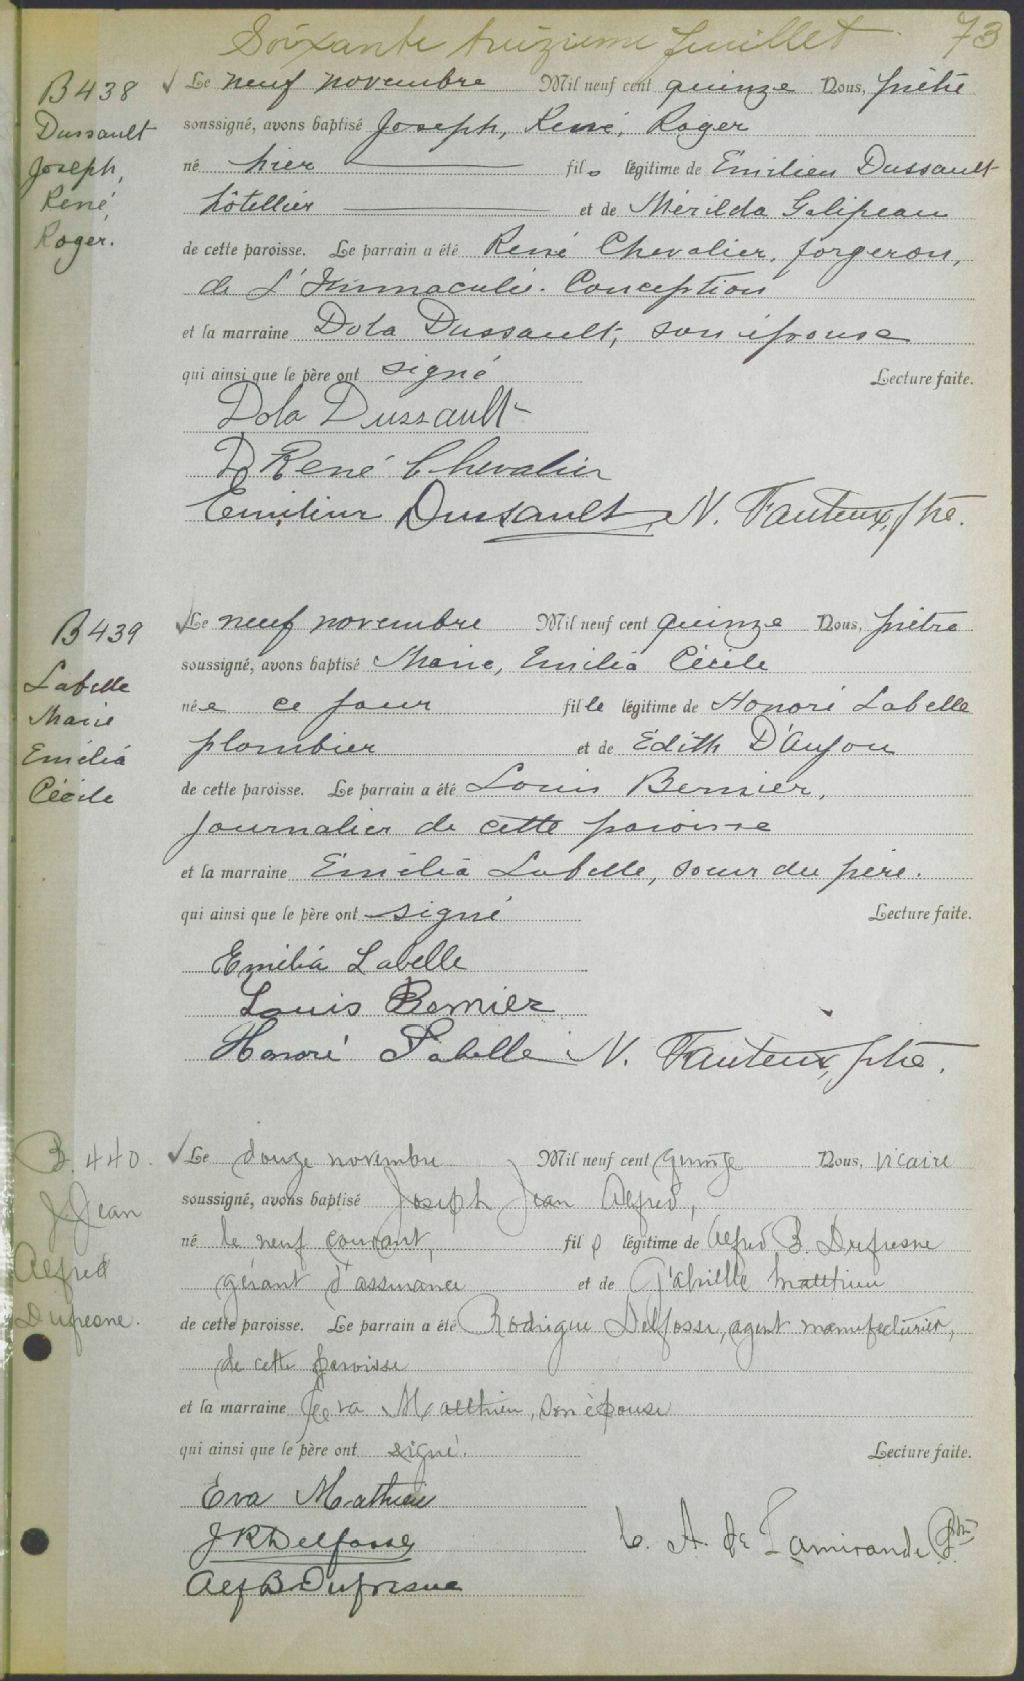 Soixante treizieme feuillet. 73
B438
Dussault
Joseph,
René
Roger.
Le neuf novembre Mil neuf cent quinze Nous, prêtre
soussigné, avons baptisé Joseph, René, Roger
né hier fils légitime de Émilien Dussault
hôtellier et de Mérilda Galipeau
de cette paroisse. Le parrain a été René Chevalier, forgeron,
de L'Immaculée-Conception
et la marraine Dola Dussault, son épouse
qui ainsi que le père ont signé Lecture faite.
Dola Dussault
D René Chevalier
Emilien Dussault N. Fauteux, ptre.
B439
Labelle
Marie
Emélia
Cécile
Le neuf novembre Mil neuf cent quinze Nous, prêtre
soussigné, avons baptisé Marie, Emilia Cécile
née ce jour fille légitime de Honoré Labelle
plombier et de Edith D'Anjou
de cette paroisse. Le parrain a été Louis Bernier,
journalier de cette paroisse
et la marraine Émélia Labelle, soeur du père.
qui ainsi que le père ont signé Lecture faite.
Emélia Labelle
Louis Bernier
Honoré Labelle N. Fauteux, ptre.
B. 440.
J. Jean
Alfred
Dufresne.
Le douze novembre Mil neuf cent quinze Nous, vicaire
soussigné, avons baptisé Joseph Jean Alfred,
né le neuf courant, fils légitime de Alfred B. Dufresne
gérant d'assurance et de Gabrielle Matthieu
de cette paroisse. Le parrain a été Rodrigue Delfosse, agent manufacturier,
de cette paroisse
et la marraine Eva Matthieu, son épouse
qui ainsi que le père ont signé. Lecture faite.
Eva Mathieu
J R Delfosse
Alf B Dufresne
C. A. de Lamirande Ptre